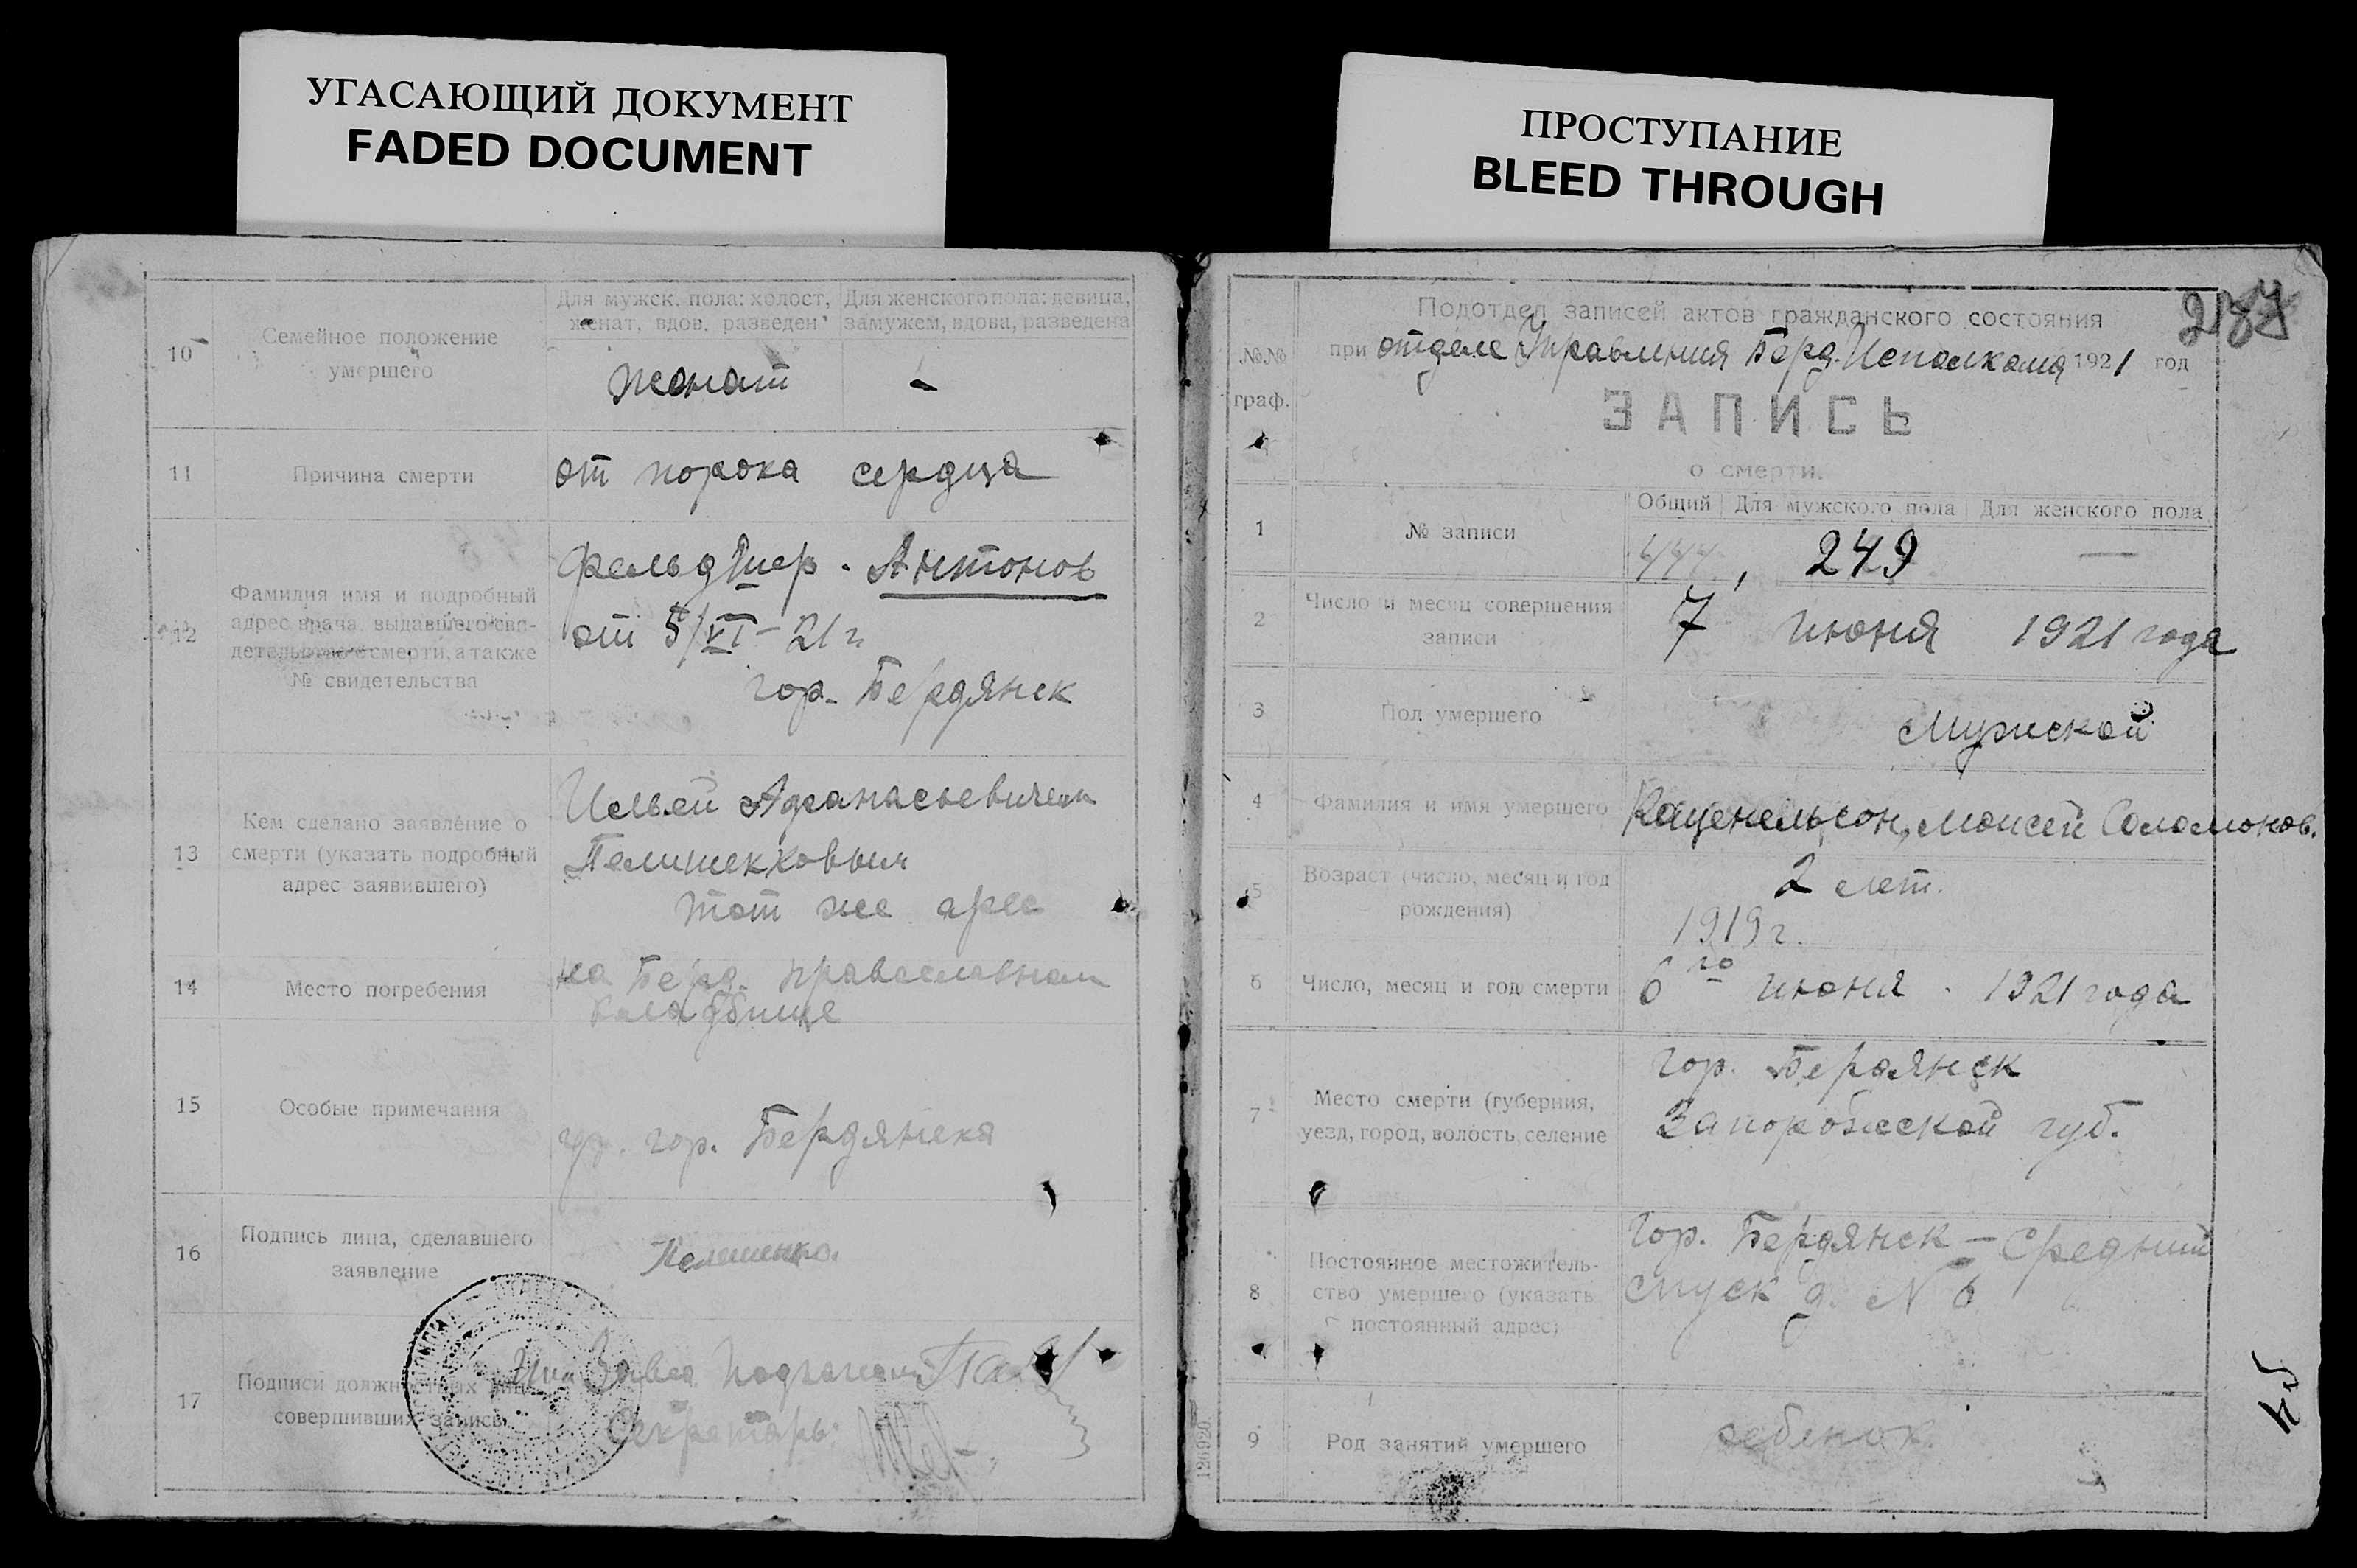 УГАСАЮЩИЙ ДОКУМЕНТ
FADED DOCUMENT
10
Семейное положение
умершего
Для мужск. пола: холост,
женат, вдов. разведен
Для женского пола: девица,
замужем, вдова, разведена
женат
-
11
Причина смерти
от порока сердца
12
Фамилия имя и подробный
адрес врача, выдавшего сви-
детельство о смерти, а также
№ свидетельства
фельдшер. Антонов
от 5/VI - 21 г
гор. Бердянск
13
Кем сделано заявление о
смерти (указать подробный
адрес заявившего)
Ильей Афанасьевичем
тот же
14
Место погребения
на Берд. православном
кладбище
15
Особые примечания
гр. гор. Бердянска
16
Подпись лица, сделавшего
заявление
17
Подписи должностных лиц
совершивших запись
Секретарь
ПРОСТУПАНИЕ
BLEED THROUGH
№№
граф.
Подотдел записей актов гражданского состояния
при отделе Управления Берд. Исполкома 1921 год
ЗАПИСЬ
о смерти.
1
№ записи
Общий
Для мужского пола
Для женского пола
444
249
—
2
Число и месяц совершения
записи
7 июня 1921 года
3
Пол умершего
Мужской
4
Фамилия и имя умершего
Каценельсон, Моисей Соломонов.
5
Возраст (число, месяц и год
рождения)
2 лет.
1919 г.
6
Число, месяц и год смерти
6го июня. 1921 года
7
Место смерти (губерния,
уезд, город, волость, селение
гор. Бердянск
Запорожской губ.
8
Постоянное местожитель-
ство умершего (указать
постоянный адрес)
гор. Бердянск - Средний
спуск д. № 6
9
Род занятий умершего
ребенок